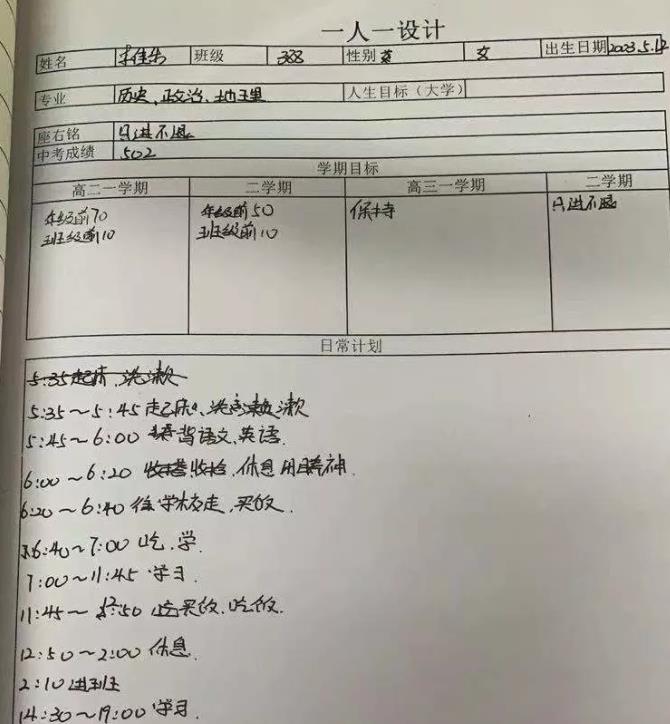 一人一设计
姓名 李佳乐 班级 388 性别 女 出生日期 2003.5.12
专业 历史、政治、地理 人生目标（大学）
座右铭 只进不退
中考成绩 502
学期目标
高二一学期 二学期 高三一学期 二学期
年级前70 年级前50 保持 只进不退
班级前10 班级前10
日常计划
5:35起床、洗漱
5:35～5:45 起床、洗漱
5:45～6:00 背语文、英语.
6:00～6:20 收拾、休息
6:20～6:40 往学校走、买饭.
6:40～7:00 吃、学.
7:00～11:45 学习.
11:45～12:50 买饭、吃饭.
12:50～2:00 休息.
2:10 进班
14:30～19:00 学习.